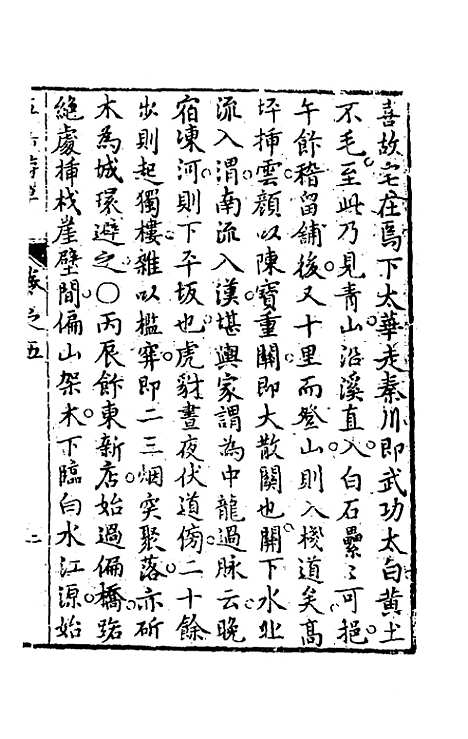 喜故宅在焉下太華走秦川即武功太白黃土
不毛至此乃見青山沿溪直入白石纍〻可挹
午飾稽留鋪後又十里而登山則入棧道矣高
坪揷雲顏以陳寶重關即大散關也關下水北
流入渭南流入漢堪輿家謂為中龍過脉云晚
宿凍河則下平坂也虎豺晝夜伏道傍二十餘
㳄則起獨樓雜以檻穽即二三烟突聚落亦斫
木為城環避之〇丙辰飾東新店始過偏橋路
絶處揷栈崖壁間偏山架木下臨白水江源始
五岳游草
卷之五
二